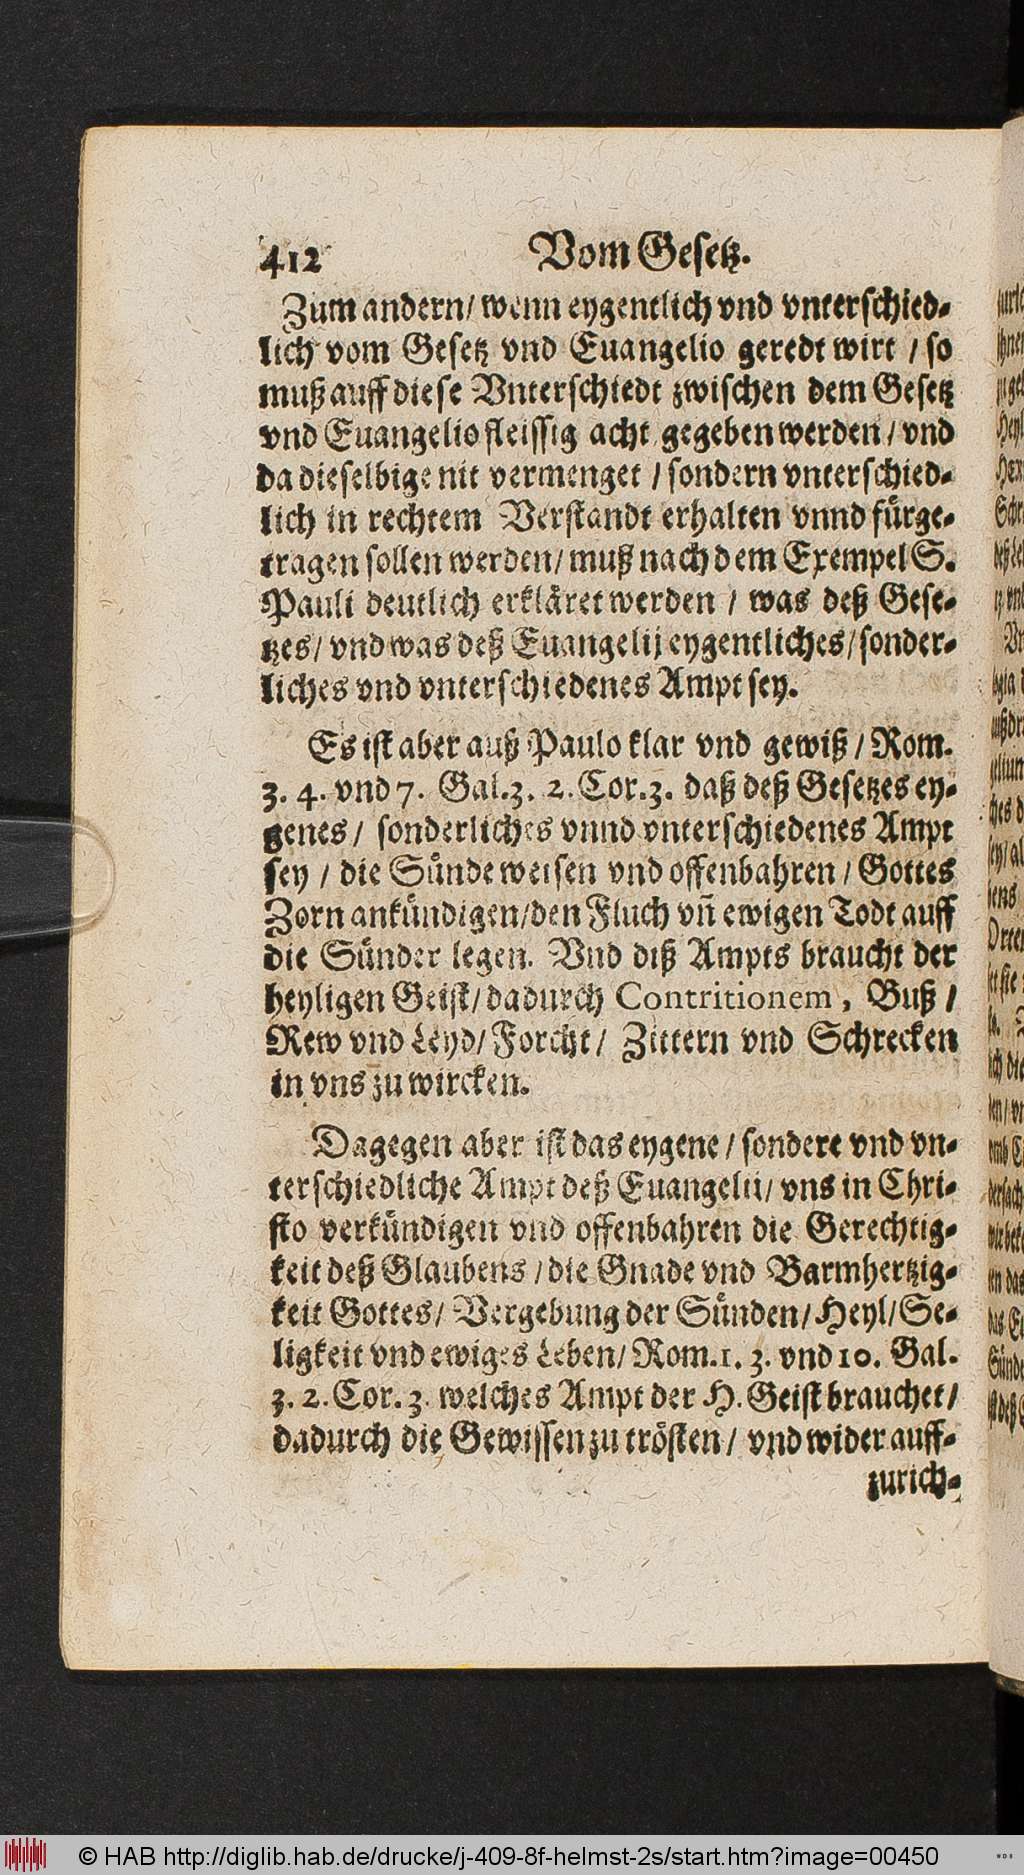 412 Vom Gesetz.
Zum andern/ wenn eygentlich vnd vnterschied-
lich vom Gesetz vnd Euangelio geredt wirt / so
muß auff diese Vnterschiedt zwischen dem Gesetz
vnd Euangelio fleissig acht gegeben werden / vnd
da dieselbige nit vermenget / sondern vnterschied-
lich in rechtem Verstandt erhalten vnnd fürge-
tragen sollen werden/ muß nach dem Exempel S.
Pauli deutlich erkläret werden / was deß Gese-
tzes/ vnd was deß Euangelij eygentliches/ sonder-
liches vnd vnterschiedenes Ampt sey.
Es ist aber auß Paulo klar vnd gewiß / Rom.
3. 4. vnd 7. Gal. 3. 2. Cor. 3. daß deß Gesetzes ey-
genes / sonderliches vnnd vnterschiedenes Ampt
sey / die Sünde weisen vnd offenbahren / Gottes
Zorn ankündigen/ den Fluch vñ ewigen Todt auff
die Sünder legen. Vnd diß Ampts braucht der
heyligen Geist/ dadurch Contritionem, Buß /
Rew vnd Leyd/ Forcht / Zittern vnd Schrecken
in vns zu wircken.
Dagegen aber ist das eygene / sondere vnd vn-
terschiedliche Ampt deß Euangelii/ vns in Chri-
sto verkündigen vnd offenbahren die Gerechtig-
keit deß Glaubens / die Gnade vnd Barmhertzig-
keit Gottes/ Vergebung der Sünden/ Heyl/ Se-
ligkeit vnd ewiges Leben/ Rom. 1. 3. vnd 10. Gal.
3. 2. Cor. 3. welches Ampt der H. Geist brauchet/
dadurch die Gewissen zu trösten / vnd wider auff-
zurich-
© HAB http://diglib.hab.de/drucke/j-409-8f-helmst-2s/start.htm?image=00450